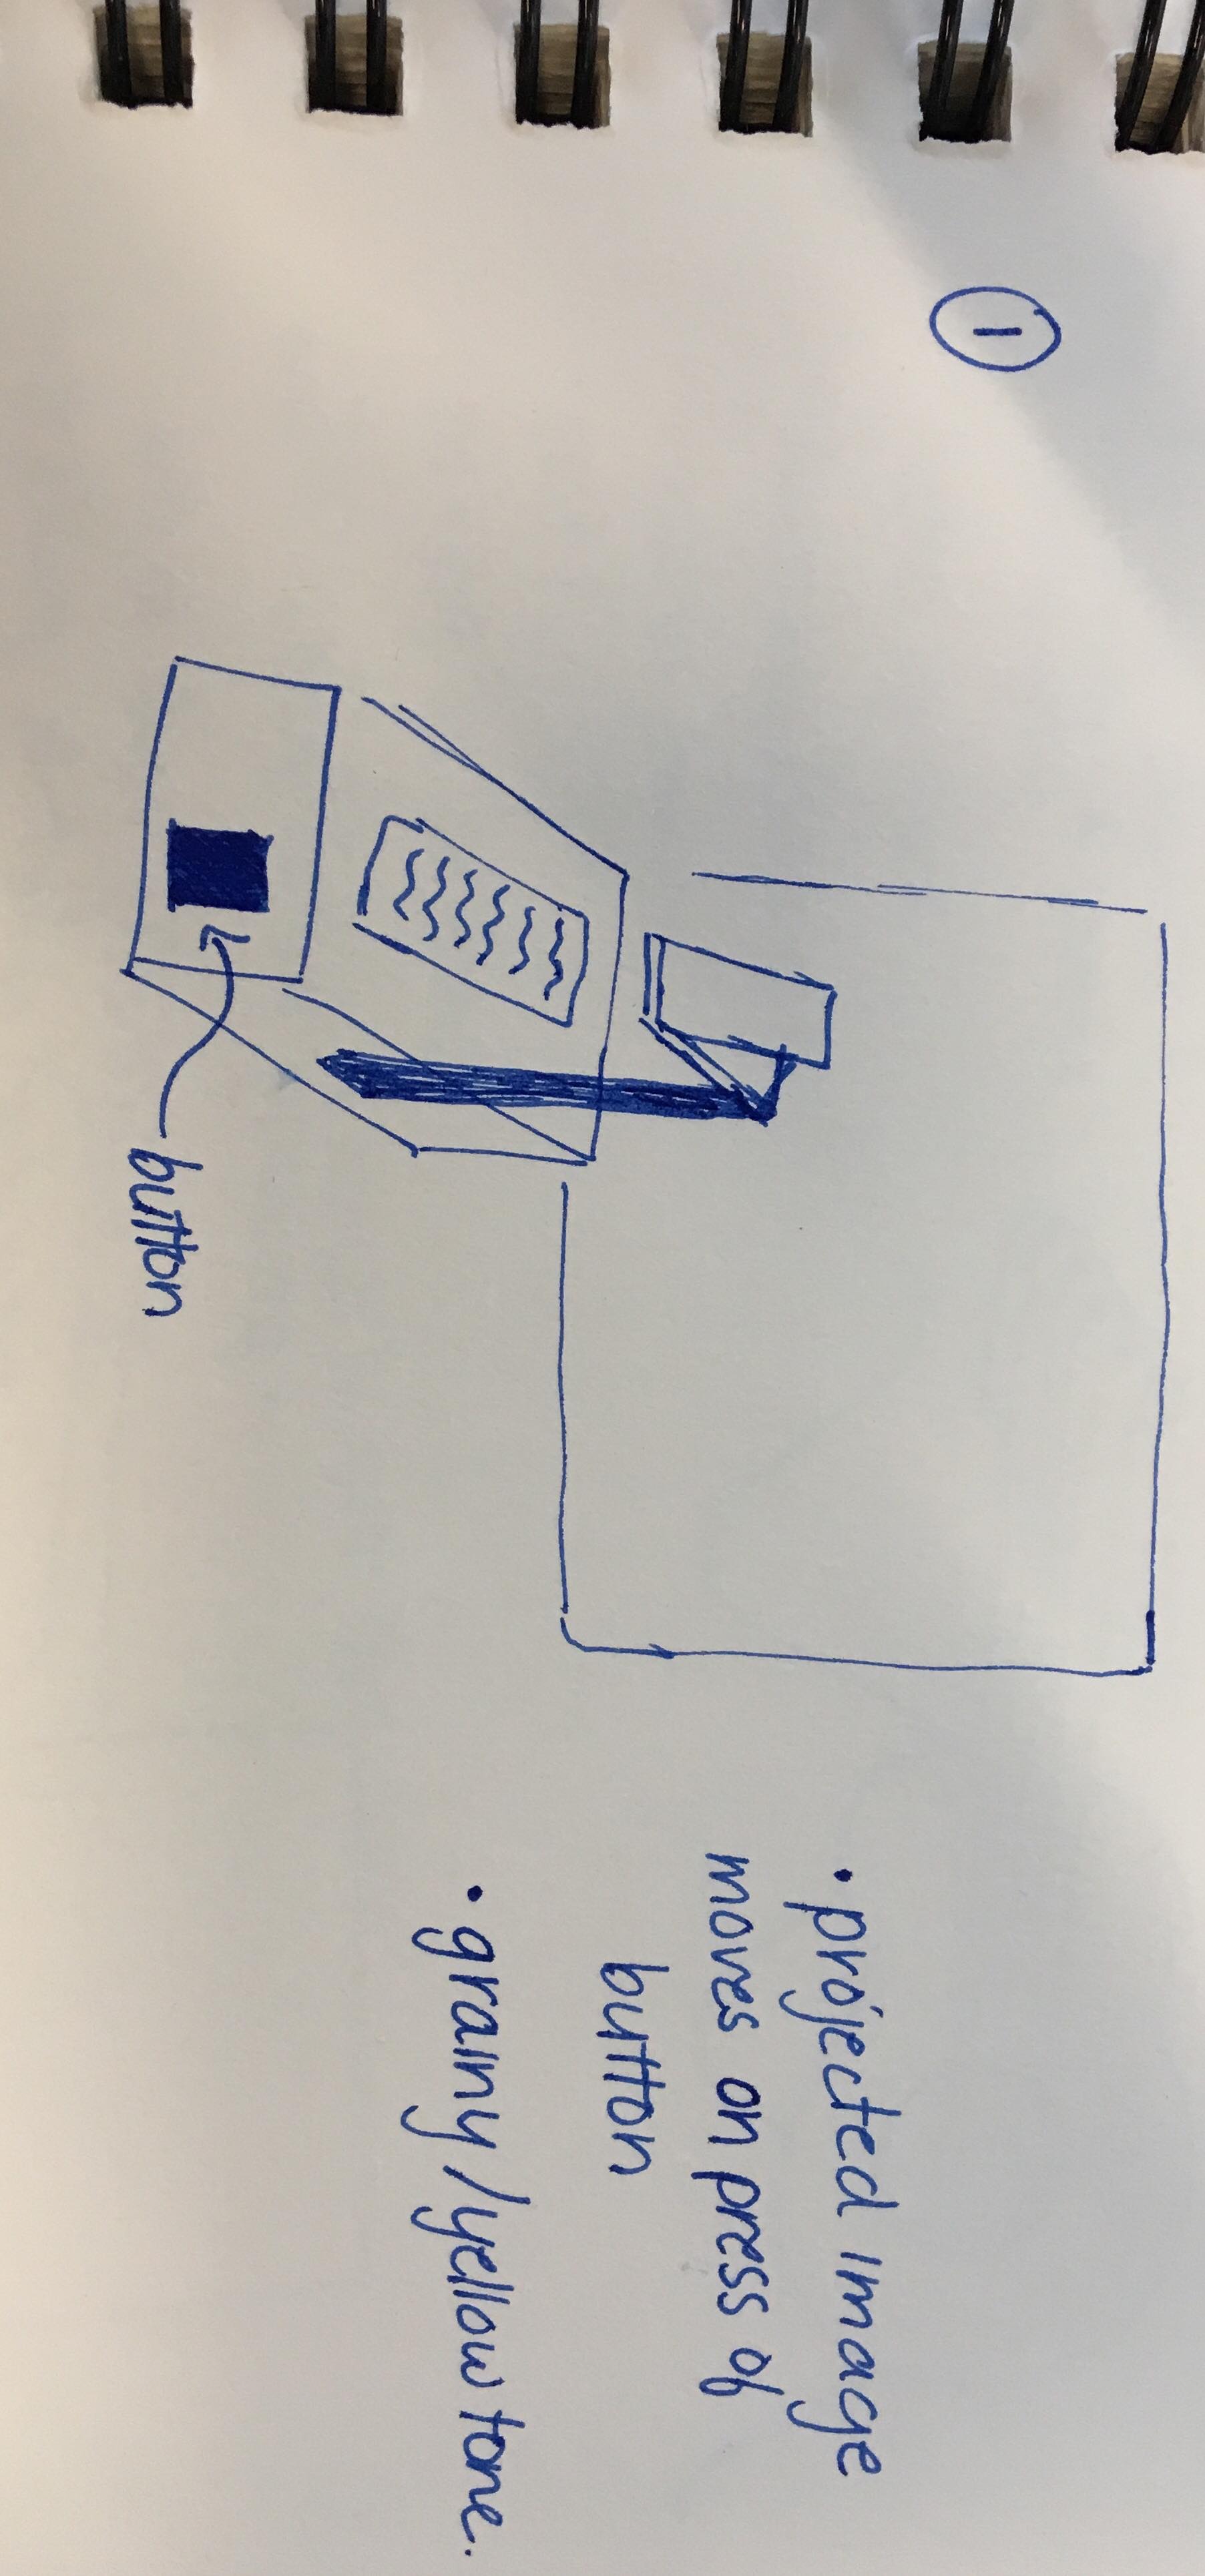 1
button
• projected image
moves on press of
button
• grainy/yellow tone.